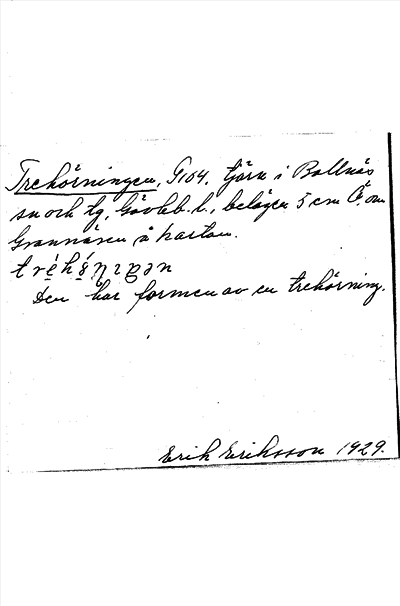 Trehörningen, G104, tjärn i Bollnäs
sn och tg, Gävleb. l., belägen 5 cm Ö. om
Grannäsen å kartan.
tre̱hö̱ŋɪŋən
Den har formen av en trehörning.
Erik Eriksson 1929.